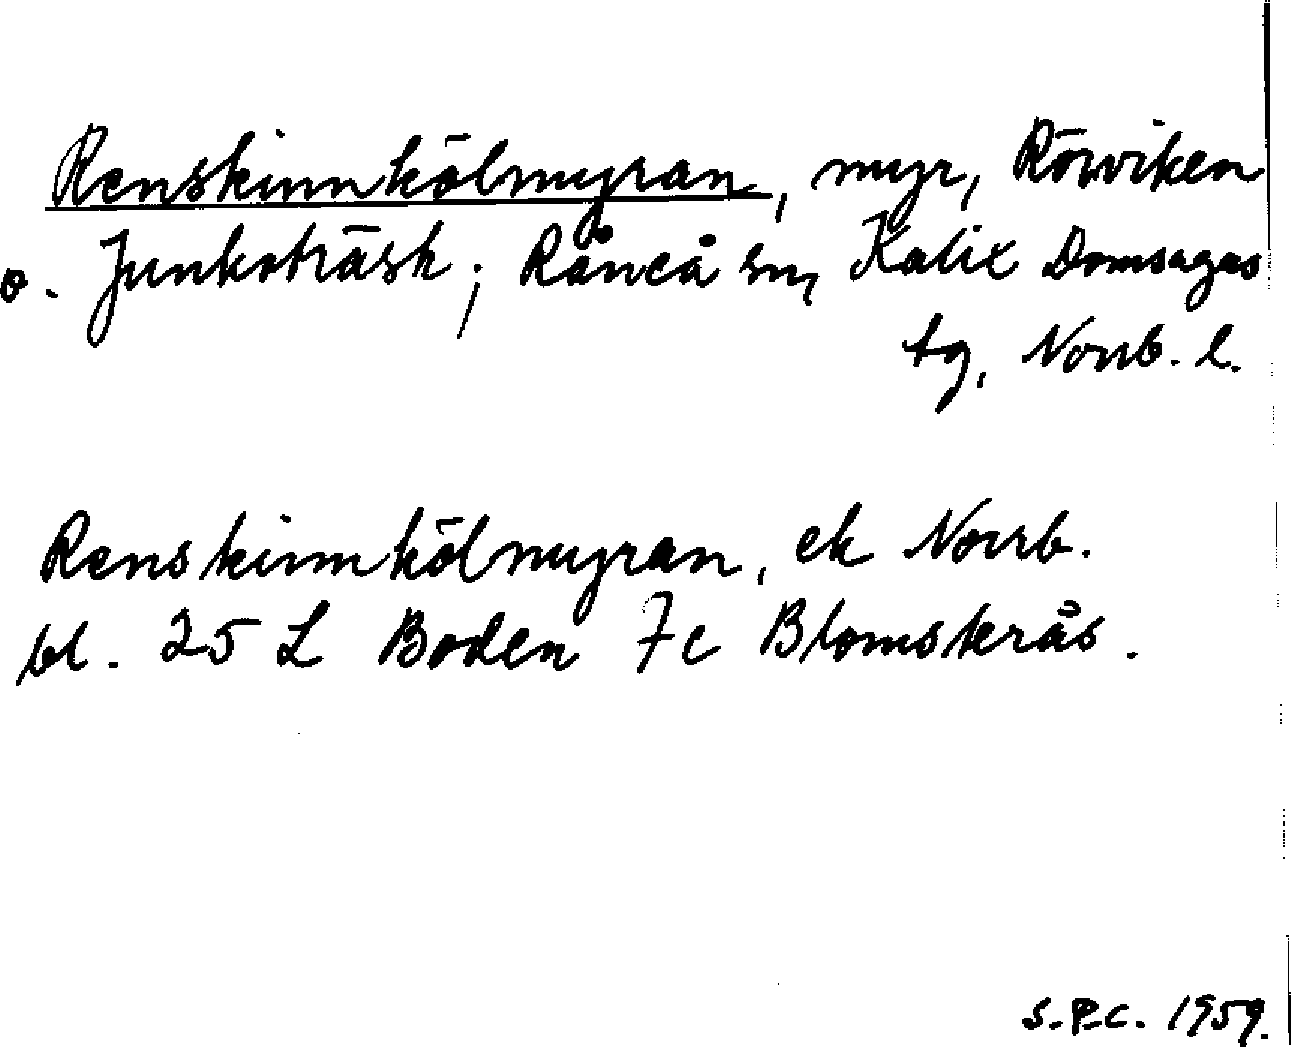 Renskinnkölmyran, myr, Rörviken
o. Junkoträsk; Råneå sn, Kalix Domsagas
tg, Norrb. l.
Renskinnkölmyran, ek Norrb.
bl. 25 L Boden 7c Blomskrås.
S.P.C. 1959.